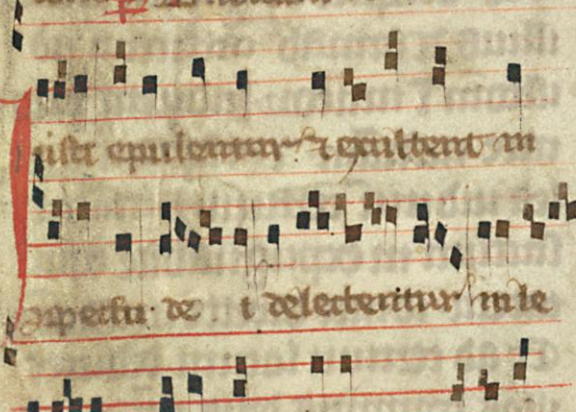 iusti epulentur & exultent in
conspectu de i delectentur in le